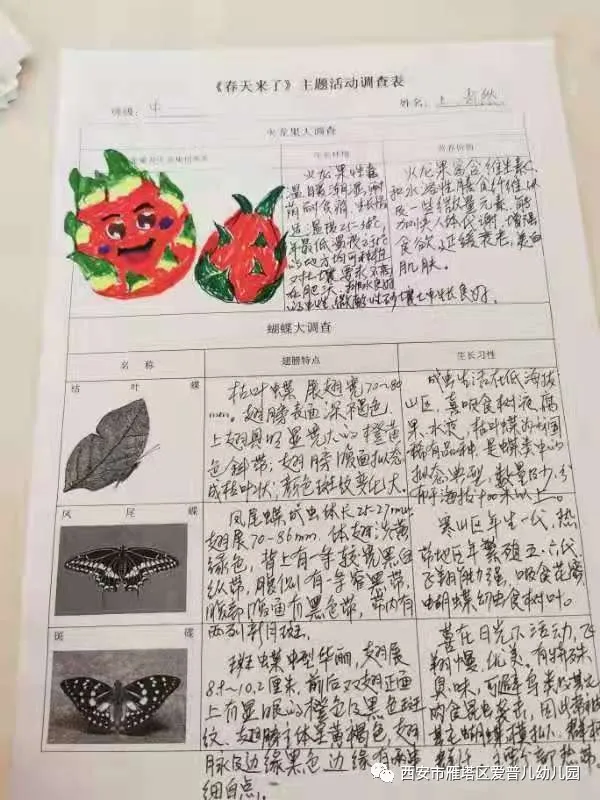 《春天来了》主题活动调查表
班级：中
姓名：
火龙果大调查
生长环境
营养价值
火龙果性喜
温暖潮湿,耐
火龙果富含维生素C
和水溶性膳食纤维,以
及一些微量元素,能
加快人体代谢,增强
食欲,延缓衰老,美白
肌肤。
蝴蝶大调查
名称
翅膀特点
生长习性
枯叶蝶
枯叶蝶展翅宽70~80
mm。翅膀表面深褐色,
上翅具明显宽大的橙黄
色斜带;翅膀腹面拟态
成枯叶状;颜色斑纹变化大。
成虫生活在低海拔
山区,喜吸食树液、腐
果、水液。枯叶蝶为中国
稀有品种,是蝶类中的
拟态典型,数量极少,
凤尾蝶
凤尾蝶成虫体长25-27mm,
翅展70-86mm,体翅淡黄
绿色,背上有一条较宽黑色
纵带,腹侧有一条窄黑带,
腹部腹面有黑色带,带内有
两列新月斑。
寒山区年生一代,热
带地区年繁殖五、六代。
飞翔能力强,吸食花蜜
蝴蝶幼虫食树叶。
斑蝶
斑蝶中型华丽,翅展
8.9~10.2厘米,前后双翅正面
上有显眼的橙色及黑色斑
纹、翅膀主体呈黄褐色,翅
脉及边缘黑色,边缘有两串
细白点。
喜在日光下活动,飞
翔缓慢,优美。有特殊
臭味,可避鸟类及其它
肉食昆虫袭击,因此常被
其它蝴蝶模拟。群栖
西安市雁塔区爱普儿幼儿园